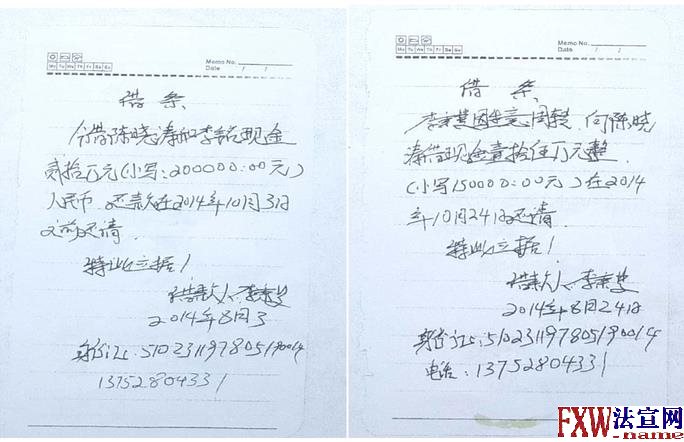 Memo No.
Mo Tu We Th Fr Sa Su
Date / /
借条
今借陈晓涛和李铭现金
贰拾万元(小写:200000:00元)
人民币.还款在2014年10月3日
之前还清.
特此立据!
借款人:李
2014年8月3
身份证:510231197805190014
13752804331
Memo No.
Mo Tu We Th Fr Sa Su
Date / /
借条
因生意周转.向陈晓
涛借现金壹拾伍万元整.
(小写150000:00元)在2014
年10月24日还清.
特此立据!
借款人:李
2014年8月24日
身份证:510231197805190014
电话:13752804331
FXW法宣网
.name